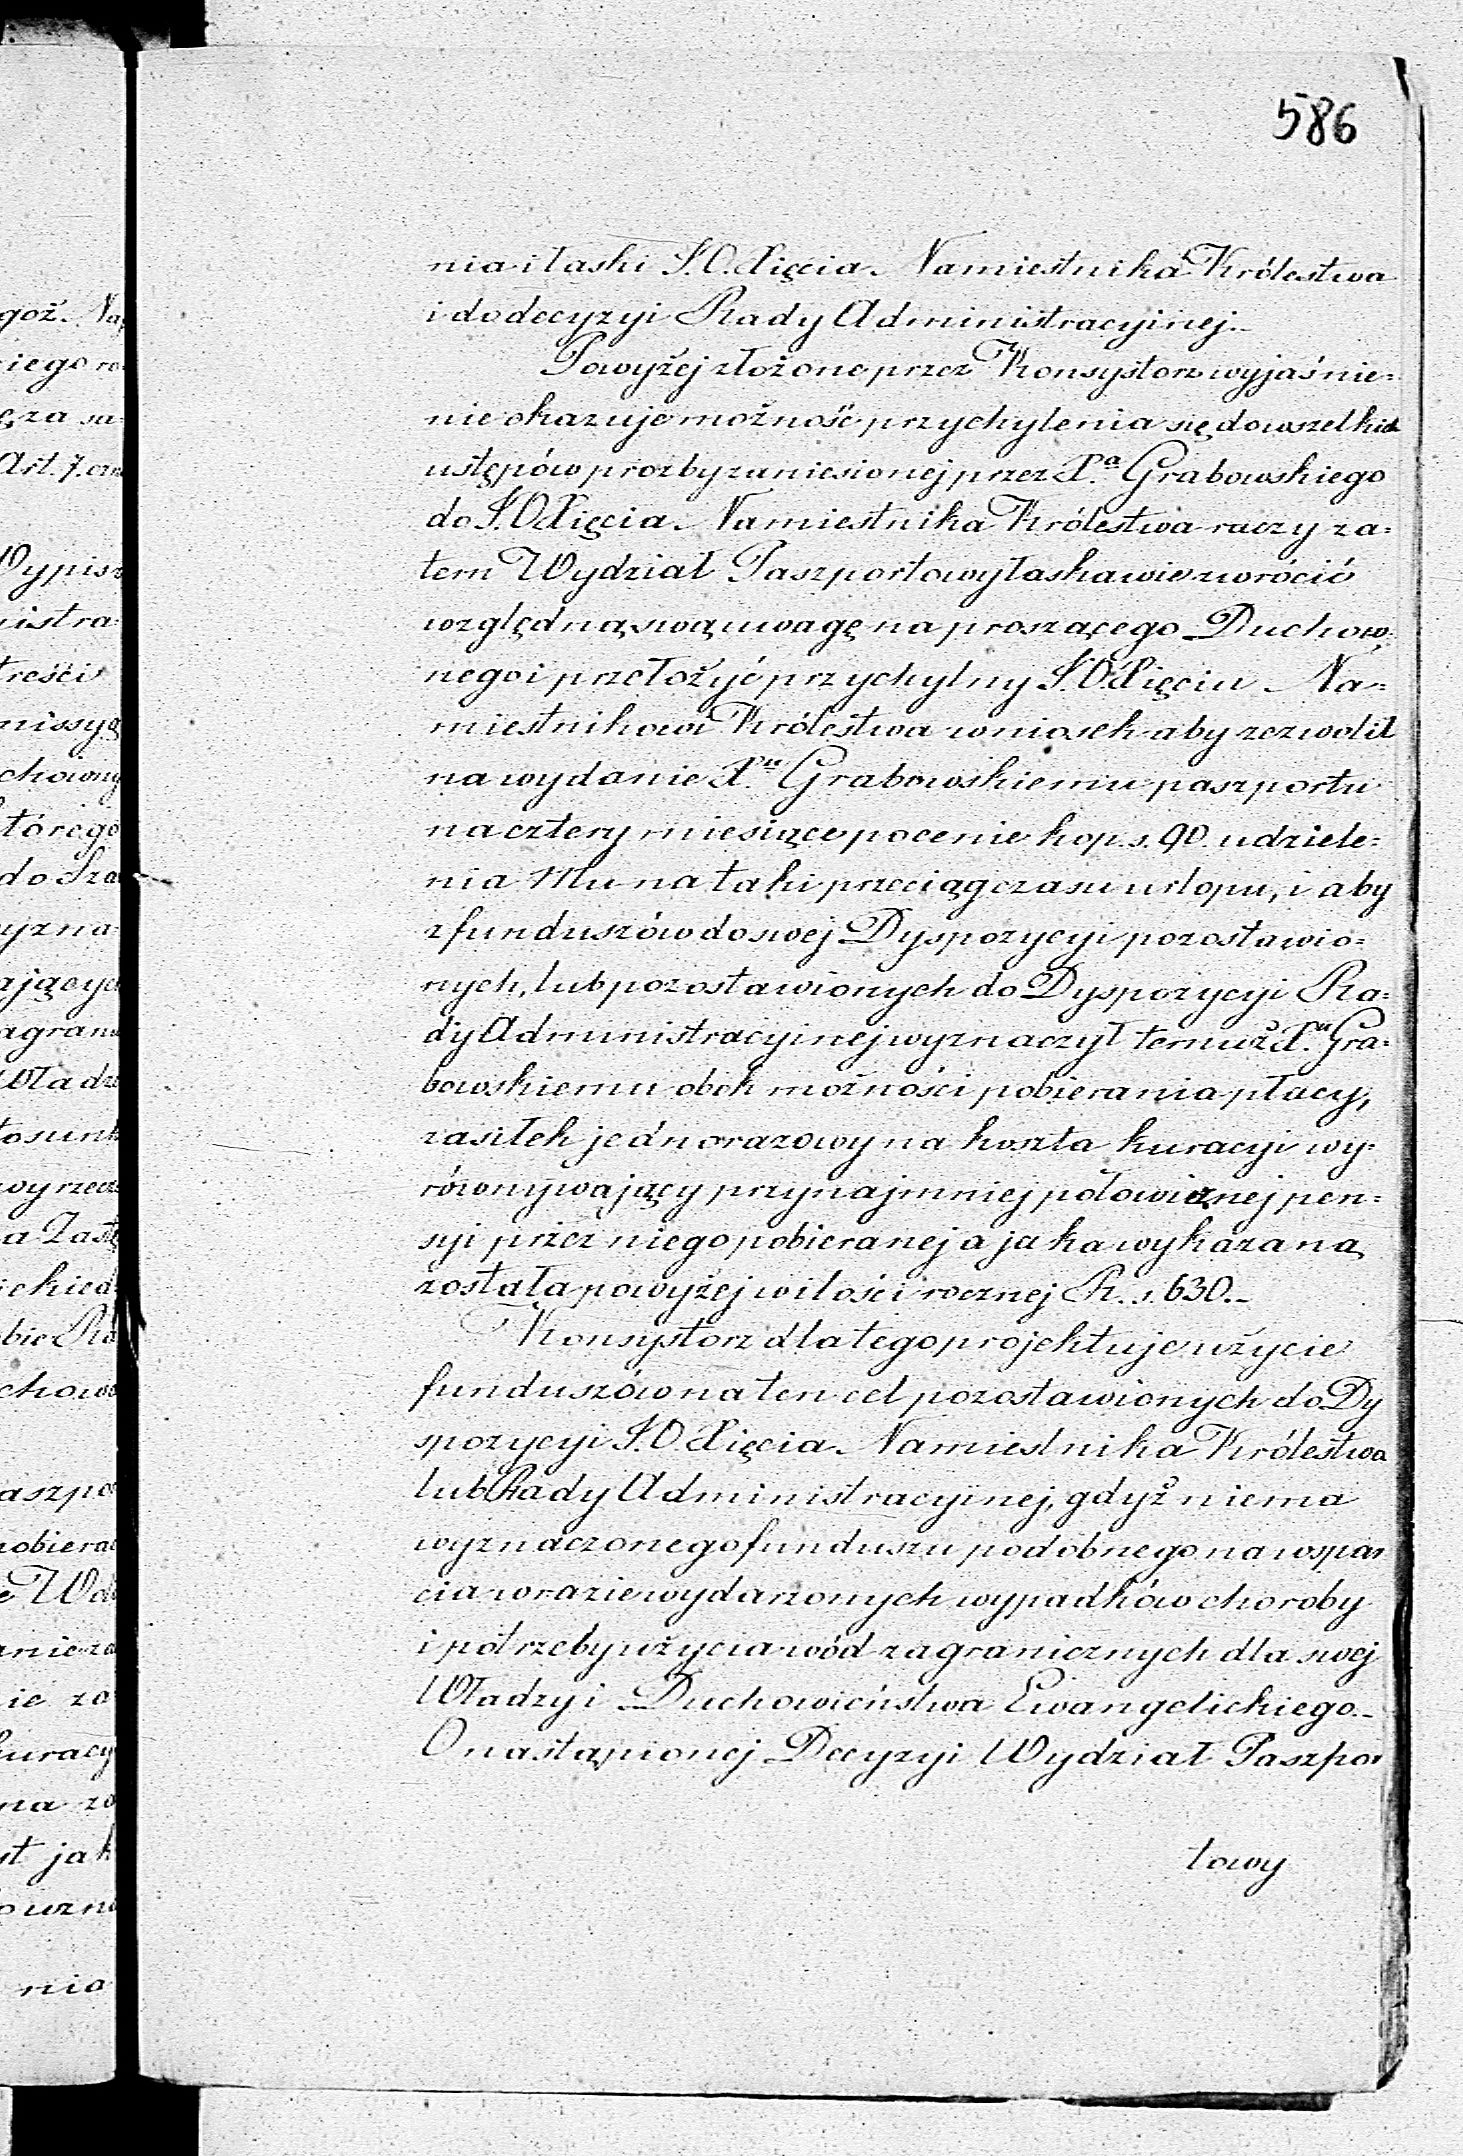 586
nia i łaski J.O. Xięcia Namiestnika Królestwa
i do decyzyi Rady Administracyjnej.–
Powyżej złożone przez Konsystorz wyjaśnie=
nie okazuje możność przychylenia się do wszelkich
ustępów prozby zaniesionej przez X.ᵃ Grabowskiego
do J.O Xięcia Namiestnika Królestwa raczy za=
tem Wydział Paszportowy łaskawie zwrócić
względną swą uwagę na proszącego Duchow=
nego i przełożyć przychylny J.O. Xięciu Na=
miestnikowi Królestwa wniosek aby zezwolił
na wydanie X.ᵘ Grabowskiemu paszportu
na cztery miesiące po cenie kop. s. 90. udziele=
nia Mu na taki przeciąg czasu urlopu, i aby
z funduszów do swej Dyspozycyi pozostawio=
nych, lub pozostawionych do Dyspozycyi Ra=
dy Administracyjnej wyznaczył temuż X.ᵘ Gra=
bowskiemu obok możności pobierania płacy,
zasiłek jednorazowy na koszta kuracyi wy=
równywający przynajmniej połowicznej pen=
syi przez niego pobieranej a jaka wykazaną
została powyżej w ilości rocznej R. s. 630.–
Konsystorz dla tego projektuje użycie
funduszów na ten cel pozostawionych do Dy
spozycyi J.O. Xięcia Namiestnika Królestwa
lub Rady Administracyjnej, gdyż niema
wyznaczonego funduszu podobnego na wspar
cia w razie wydarzonych wypadków choroby
i potrzeby użycia wód zagranicznych dla swej
Władzy i Duchowieństwa Ewangelickiego.–
O nastąpionej Decyzyi Wydział Paszpor
towy